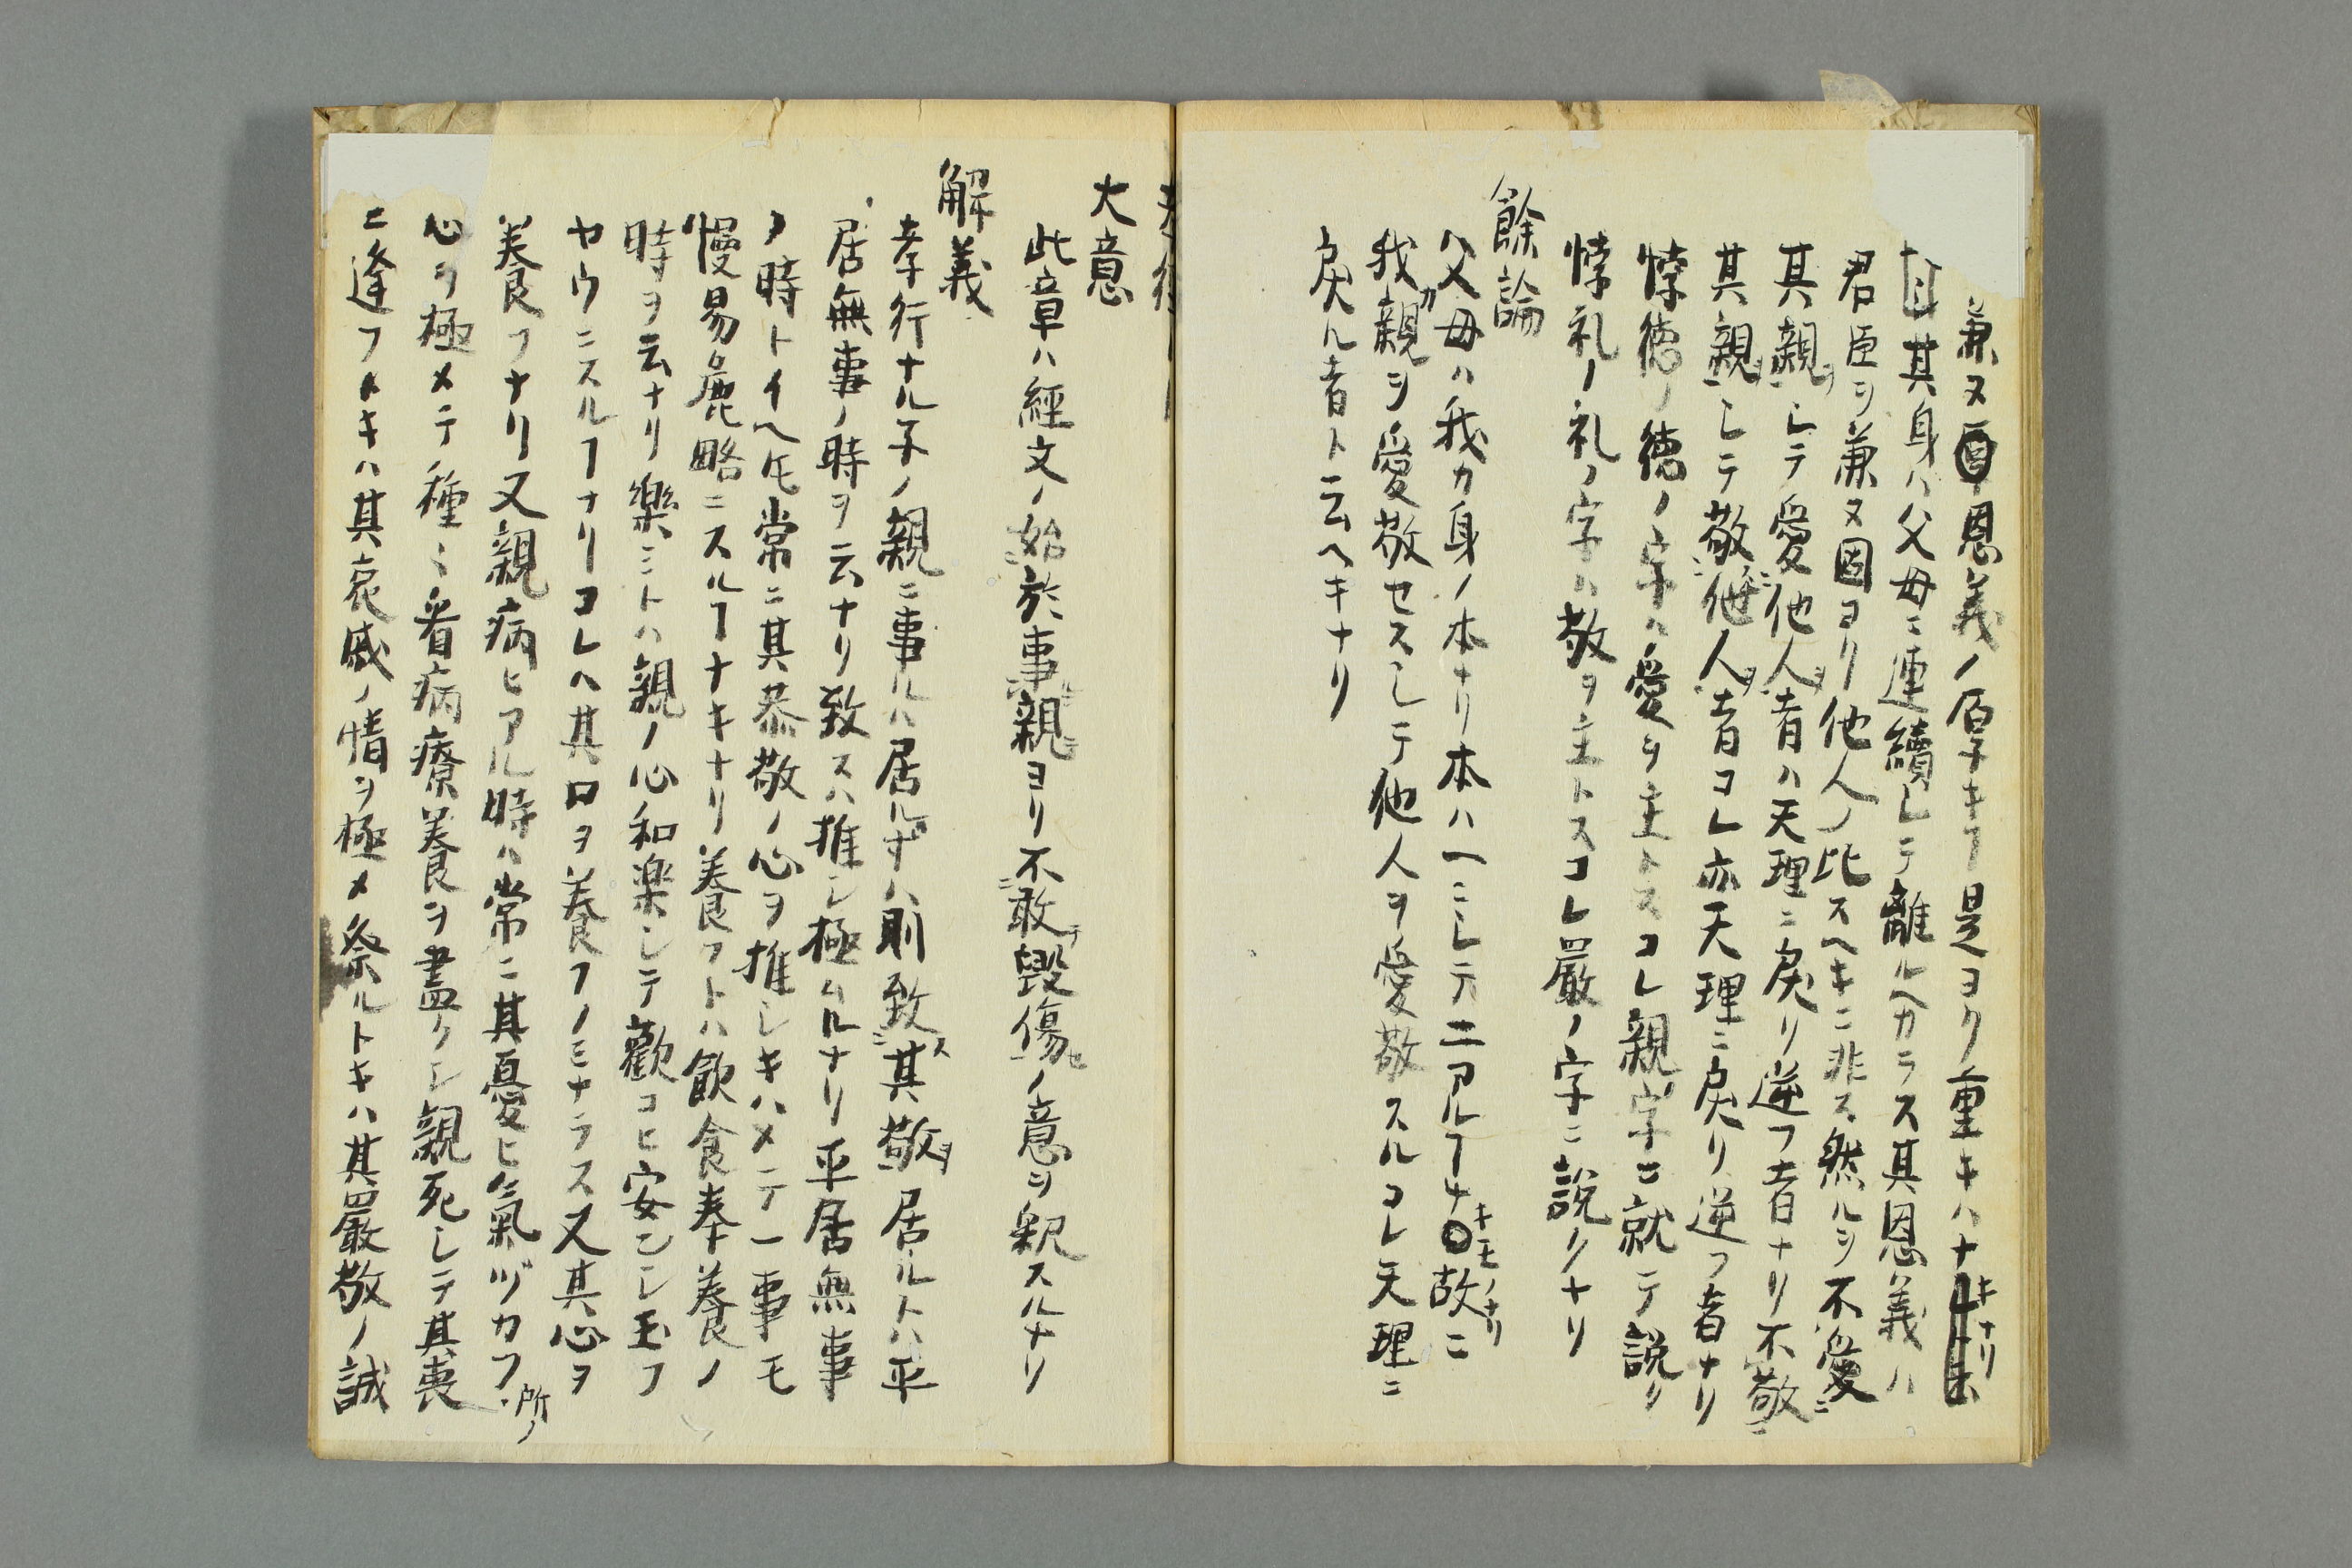 兼ヌ恩義ノ厚キヿ是ヨリ重キハナキナリ
其身ハ父母ニ連續シテ離ルヘカラス其恩義ハ
君臣ヲ兼ヌ固ヨリ他人ノ比スヘキニ非ス然ルヲ不愛ニ
其親ヲシテ愛ニ他人ヲ者ハ天理ニ戻リ逆フ者ナリ不敬ニ
其親ヲシテ敬ニ他人ヲ者コレ亦天理ニ戻リ逆フ者ナリ
悖徳ノ徳ノ字ハ愛ヲ主トスコレ親ノ字ニ就テ説ク
悖礼ノ礼ノ字ハ敬ヲ主トスコレ嚴ノ字ニ説クナリ
餘論
父母ハ我カ身ノ本ナリ本ハ一ニシテ二アルヿナキモノナリ故ニ
我カ親ヲ愛敬セスシテ他人ヲ愛敬スルコレ天理ニ
戻ル者ト云ヘキナリ
大意
此章ハ經文ノ始ニ於事ルニ親ニヨリ不敢テ毀傷セノ意ヲ釈スルナリ
解義
孝行ナル子ノ親ニ事ルハ居ルヰハ則致ニス其敬ヲ居ルトハ平
居無事ノ時ヲ云ナリ致スハ推シ極ムルナリ平居無事
ノ時トイヘ𪜈常ニ其恭敬ノ心ヲ推シキハメテ一事モ
慢易麁略ニスルヿナキナリ養フトハ飲食奉養ノ
時ヲ云ナリ樂ミトハ親ノ心和楽シテ歡コヒ安ンシ玉フ
ヤウニスルヿナリコレハ其口ヲ養フノミナラス又其心ヲ
養フナリ又親病ヒアル時ハ常ニ其憂ヒ氣ヅカフ所ノ
心ヲ極メテ種ミ看病療養ヲ盡クシ親死シテ其喪
ニ逢フメキハ其哀戚ノ情ヲ極メ祭ルトキハ其嚴敬ノ誠